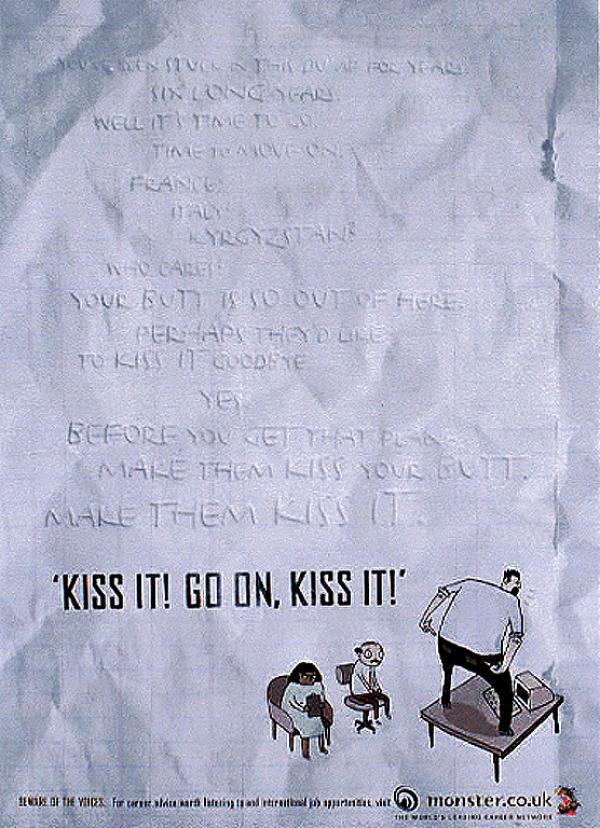 YOU'VE BEEN STUCK IN THIS DUMP FOR YEARS.
SIX LONG YEARS.
WELL IT'S TIME TO GO.
TIME TO MOVE ON.
FRANCE?
ITALY?
KYRGYZSTAN?
WHO CARES?
YOUR BUTT IS SO OUT OF HERE.
PERHAPS THEY'D LIKE
TO KISS IT GOODBYE.
YES.
BEFORE YOU GET THAT PLANE
MAKE THEM KISS YOUR BUTT.
MAKE THEM KISS IT.
'KISS IT! GO ON, KISS IT!'
BEWARE OF THE VOICES. For career advice worth listening to and international job opportunities, visit monster.co.uk
THE WORLD'S LEADING CAREER NETWORK